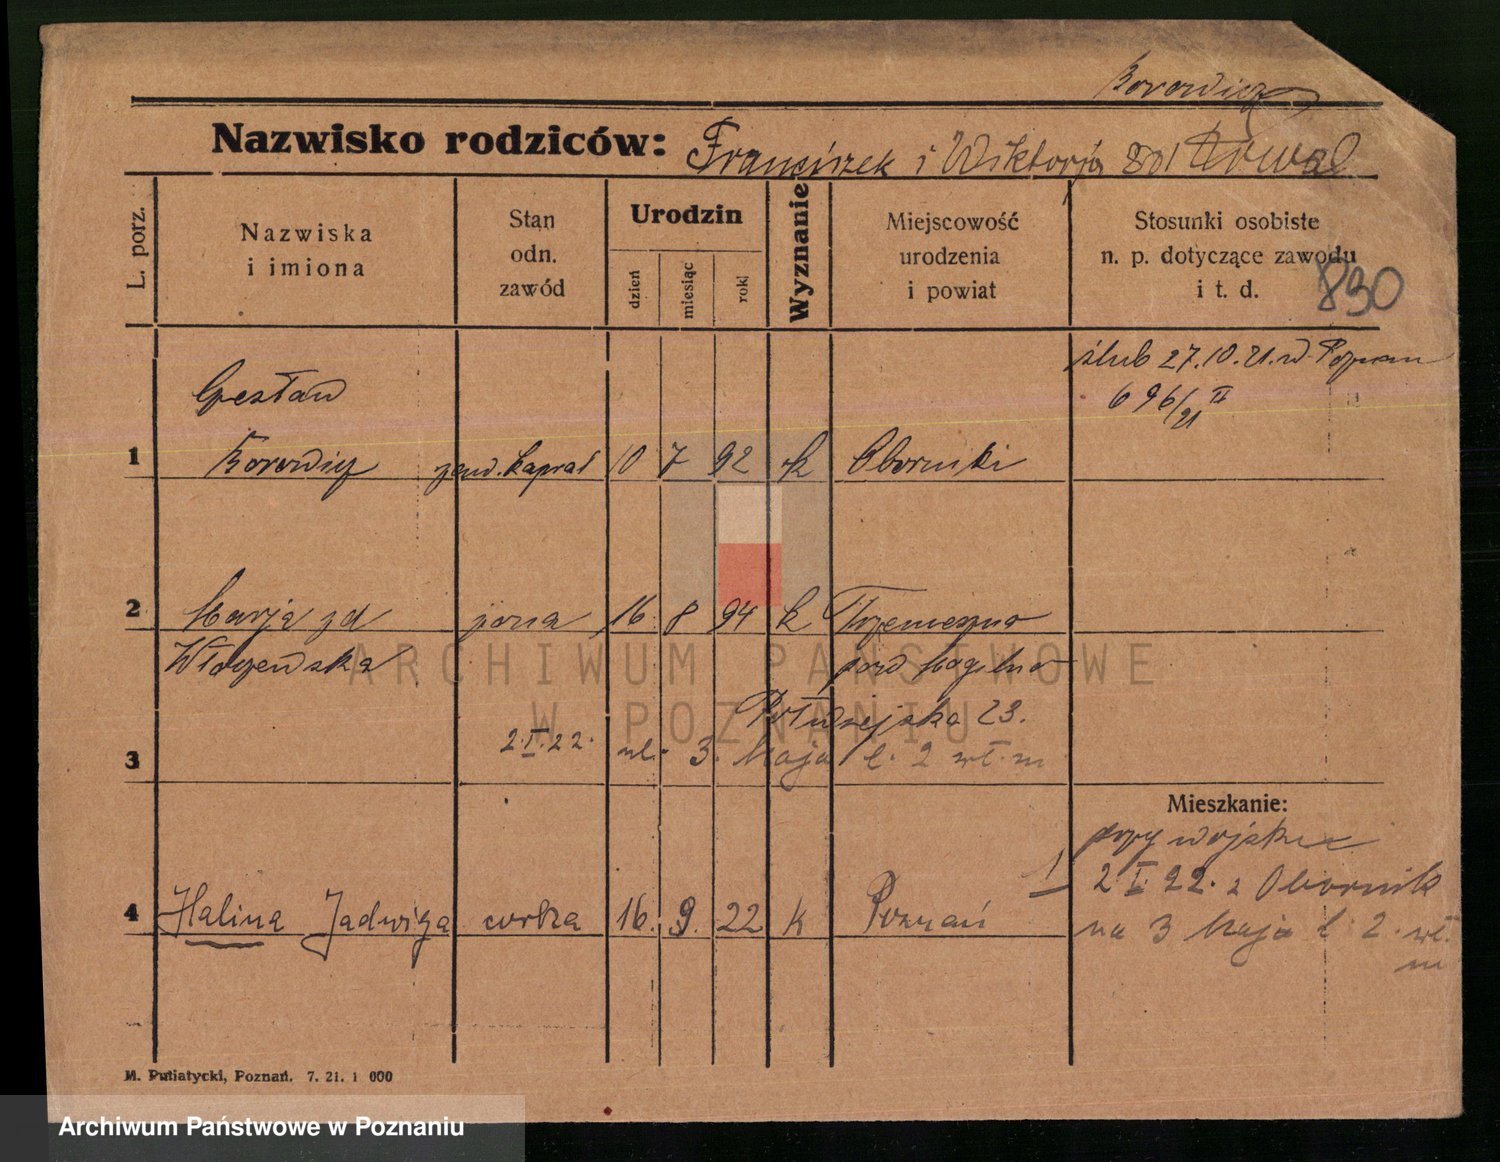 Borowicz
Nazwisko rodziców: Franciszek i Wiktorja
L. porz.
Nazwiska
i imiona
Stan
odn.
zawód
Urodzin
dzień
miesiąc
rok
Wyznanie
Miejscowość
urodzenia
i powiat
Stosunki osobiste
n. p. dotyczące zawodu
i t. d.
890
ślub 27.10.21. w Poznaniu
696/21 II
Czesław
1 Borowicz żand. kapral 10 7 92 k Oborniki
2 Marja zd żona 16 8 94 k Trzemeszno
pow Mogilno
23.
3 2.I.22. ul. 3. Maja l. 2 wł. m
Mieszkanie:
przy wojsku
1 2 I. 22. z Obornik
4 Halina Jadwiga corka 16. 9. 22 k Poznań
na 3 Maja l. 2. wł.
m
M. Putiatycki, Poznań. 7. 21. 1 000
ARCHIWUM PAŃSTWOWE
W POZNANIU
Archiwum Państwowe w Poznaniu